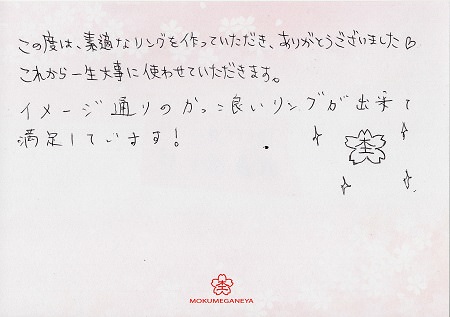 この度は、素適なリングを作っていただき、ありがとうございました♡
これから一生大事に使わせていただきます。
イメージ通りのかっこ良いリングが出来て
満足しています!
杢
杢
MOKUMEGANEYA